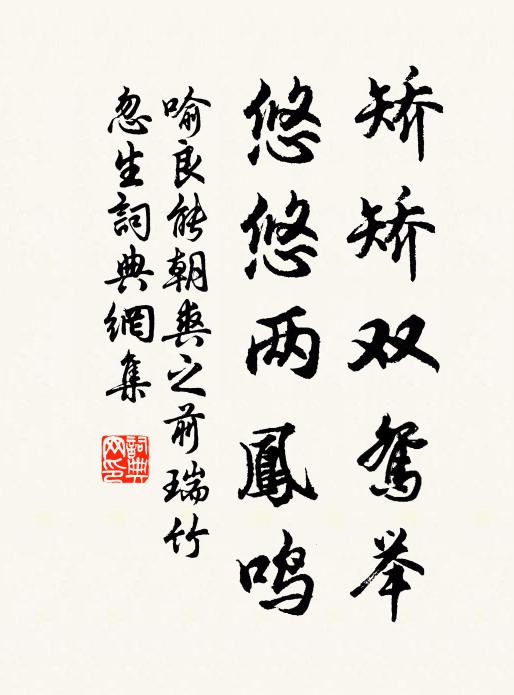 矫矫双鸳举
悠悠两鳳鸣
喻良能朝爽之前瑞竹
忽生詞典網集
詞典网印